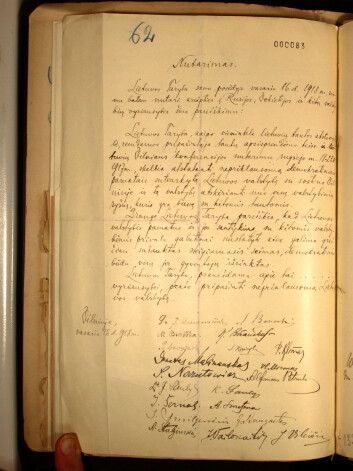 62
000083
Nutarimas.
Lietuvos Taryba savo posėdyje vasario 16 d. 1918 m. vie-
nu balsu nutarė kreiptis į Rusijos, Vokietijos ir kitų vals-
tybių vyriausybes šiuo pareiškimu:
Lietuvos Taryba, kaipo vienintelė lietuvių tautos atstovy-
bė, remdamos pripažintąja tautų apsisprendimo teise ir lie-
tuvių Vilniaus konferencijos nutarimu rugsėjo m. 18-23 d.
1917 m., skelbia atstatanti nepriklausomą, demokratiniais
pamatais sutvarkytą Lietuvos valstybę su sostine Vil-
niuje ir tą valstybę atskirianti nuo visų valstybinių
ryšių, kurie yra buvę su kitomis tautomis.
Drauge Lietuvos Taryba pareiškia, kad Lietuvos
valstybės pamatus ir jos santykius su kitomis valsty-
bėmis privalo galutinai nustatyti kiek galima grei-
čiau sušauktas steigiamasis seimas, demokratiniu
būdu visų jos gyventojų išrinktas.
Lietuvos Taryba, pranešdama apie tai
vyriausybei, prašo pripažinti nepriklausomą Lietu-
vos valstybę.
Vilniuje,
vasario 16 d. 1918 m.
Dr. J. Basanavičius
M. Biržiška
S. Narutowicz
K. Šaulys
A. Smetona
J. Vileišis